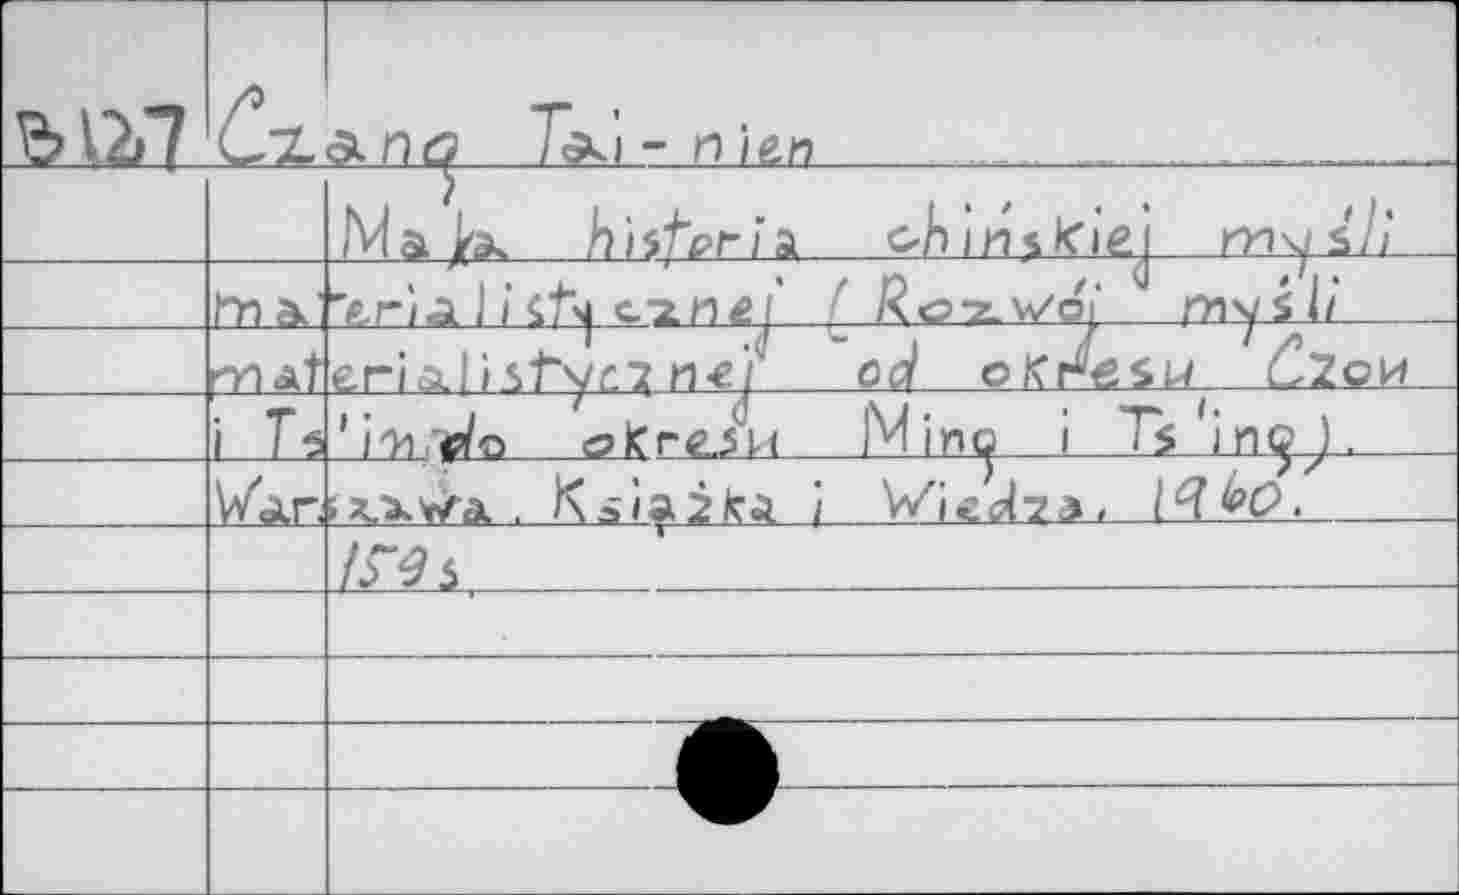 B127 Czang Tai-nien
Mała historia chińskiej myśli
materialistycznej (Rozwój myśli
materialistycznej od okresu Czou
i Ts'in do okresu Ming i Ts'ing).
Warszawa. Książka i Wiedza, 1960.
159s.